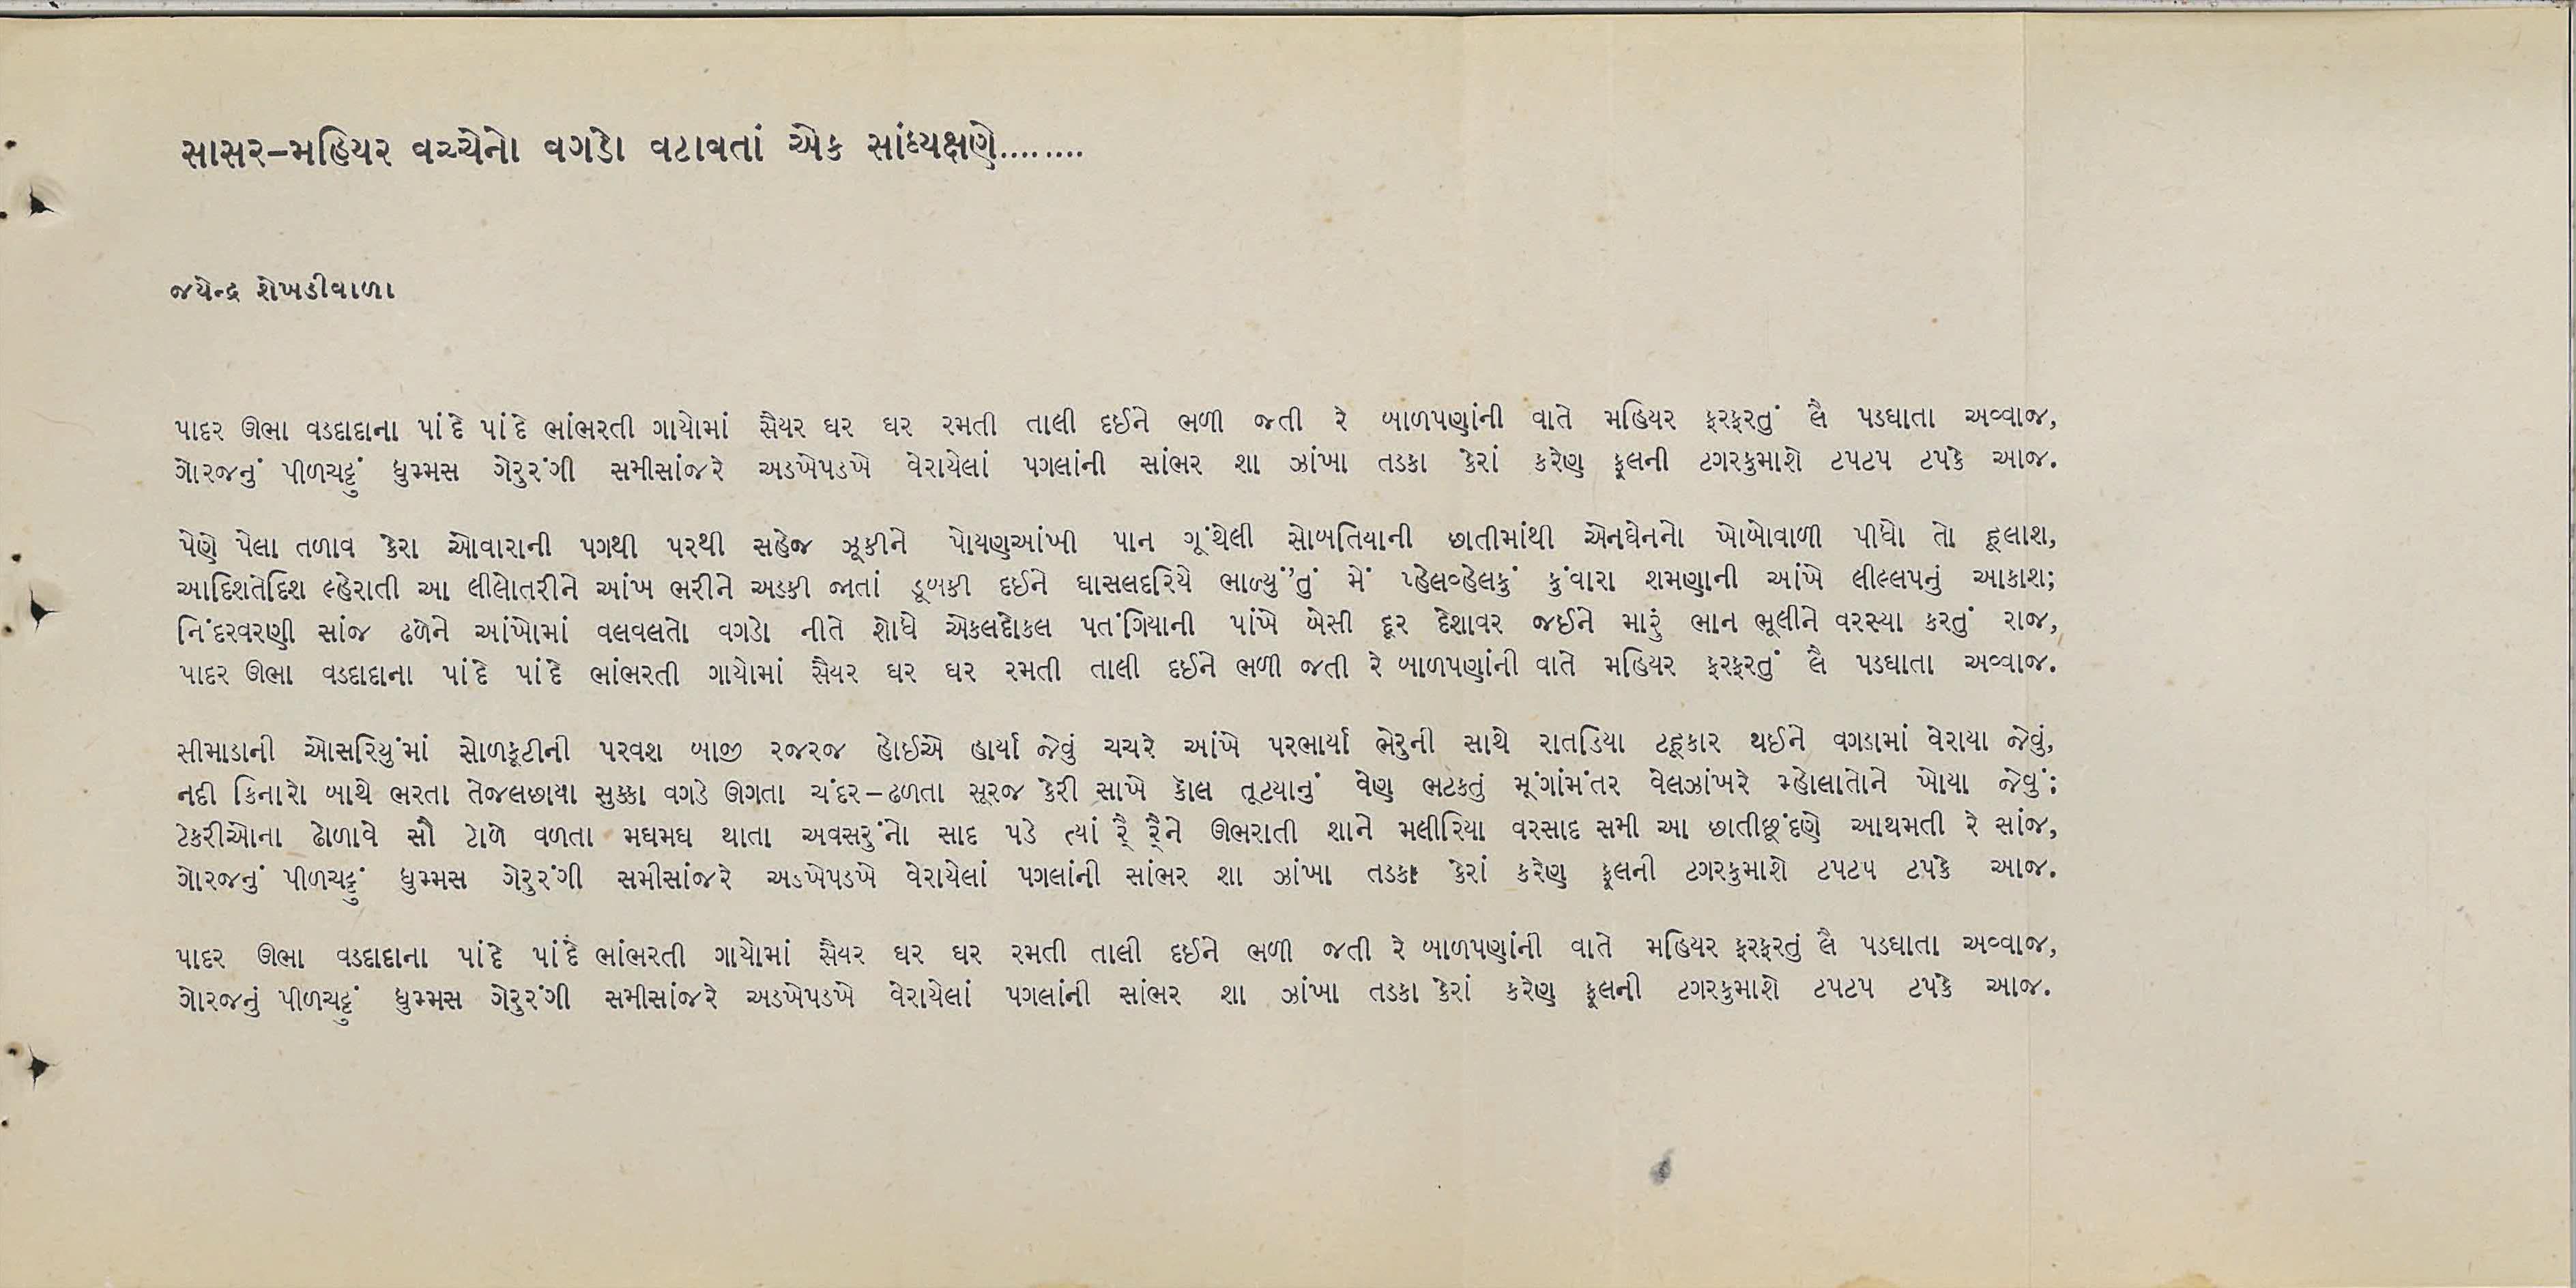 સાસર-મહિયર વચ્ચેનો વગડો વટાવતાં એક સાંધ્યક્ષણે........
જયેન્દ્ર શેખડીવાળા
પાદર ઊભા વડદાદાના પાંદે પાંદે ભાંભરતી ગાયોમાં સૈયર ઘર ઘર રમતી તાલી દઈને ભળી જતી રે બાળપણાંની વાતે મહિયર ફરફરતું લૈ પડઘાતા અવ્વાજ,
ગોરજનું પીળચટ્ટું ધુમ્મસ ગેરુરંગી સમીસાંજરે અડખેપડખે વેરાયેલાં પગલાંની સાંભર શા ઝાંખા તડકા કેરાં કરેણ ફૂલની ટગરકુમાશે ટપટપ ટપકે આજ.
પેણે પેલા તળાવ કેરા ઓવારાની પગથી પરથી સહેજ ઝૂકીને પોયણઆંખી પાન ગૂંથેલી સોબતિયાની છાતીમાંથી એનઘેનનો ખોબોવાળી પીધો તો હૂલાશ,
આદિશતેદિશ લ્હેરાતી આ લીલોતરીને આંખ ભરીને અડકી જાતાં ડૂબકી દઈને ઘાસલદરિયે ભાળ્યું'તું મેં પ્હેલવ્હેલકું કુંવારા શમણાની આંખે લીલ્લપનું આકાશ;
નિંદરવરણી સાંજ ઢળેને આંખોમાં વલવલતો વગડો નીતે શોધે એકલદોકલ પતંગિયાની પાંખે બેસી દૂર દેશાવર જઈને મારું ભાન ભૂલીને વરસ્યા કરતું રાજ,
પાદર ઊભા વડદાદાના પાંદે પાંદે ભાંભરતી ગાયોમાં સૈયર ઘર ઘર રમતી તાલી દઈને ભળી જતી રે બાળપણાંની વાતે મહિયર ફરફરતું લૈ પડઘાતા અવ્વાજ.
સીમાડાની ઓસરિયુંમાં સોળકૂટીની પરવશ બાજી રજરજ હોઈએ હાર્યા જેવું ચચરે આંખે પરભાર્યા ભેરુની સાથે રાતડિયા ટહૂકાર થઈને વગડામાં વેરાયા જેવું,
નદી કિનારો બાથે ભરતા તેજલછાયા સુક્કા વગડે ઊગતા ચંદર-ઢળતા સૂરજ કેરી સાખે કૉલ તૂટયાનું વેણ ભટકતું મૂંગાંમંતર વેલઝાંખરે મ્હોલાતોને ખોયા જેવું;
ટેકરીઓના ઢોળાવે સૌ ટોળે વળતા મઘમઘ થાતા અવસરુંનો સાદ પડે ત્યાં રૈ્ રૈ્ને ઊભરાતી શાને મલીરિયા વરસાદ સમી આ છાતીછૂંદણે આથમતી રે સાંજ,
ગોરજનું પીળચટ્ટું ધુમ્મસ ગેરુરંગી સમીસાંજરે અડખેપડખે વેરાયેલાં પગલાંની સાંભર શા ઝાંખા તડકા કેરાં કરેણ ફૂલની ટગરકુમાશે ટપટપ ટપકે આજ.
પાદર ઊભા વડદાદાના પાંદે પાંદે ભાંભરતી ગાયોમાં સૈયર ઘર ઘર રમતી તાલી દઈને ભળી જતી રે બાળપણાંની વાતે મહિયર ફરફરતું લૈ પડઘાતા અવ્વાજ,
ગોરજનું પીળચટ્ટું ધુમ્મસ ગેરુરંગી સમીસાંજરે અડખેપડખે વેરાયેલાં પગલાંની સાંભર શા ઝાંખા તડકા કેરાં કરેણ ફૂલની ટગરકુમાશે ટપટપ ટપકે આજ.